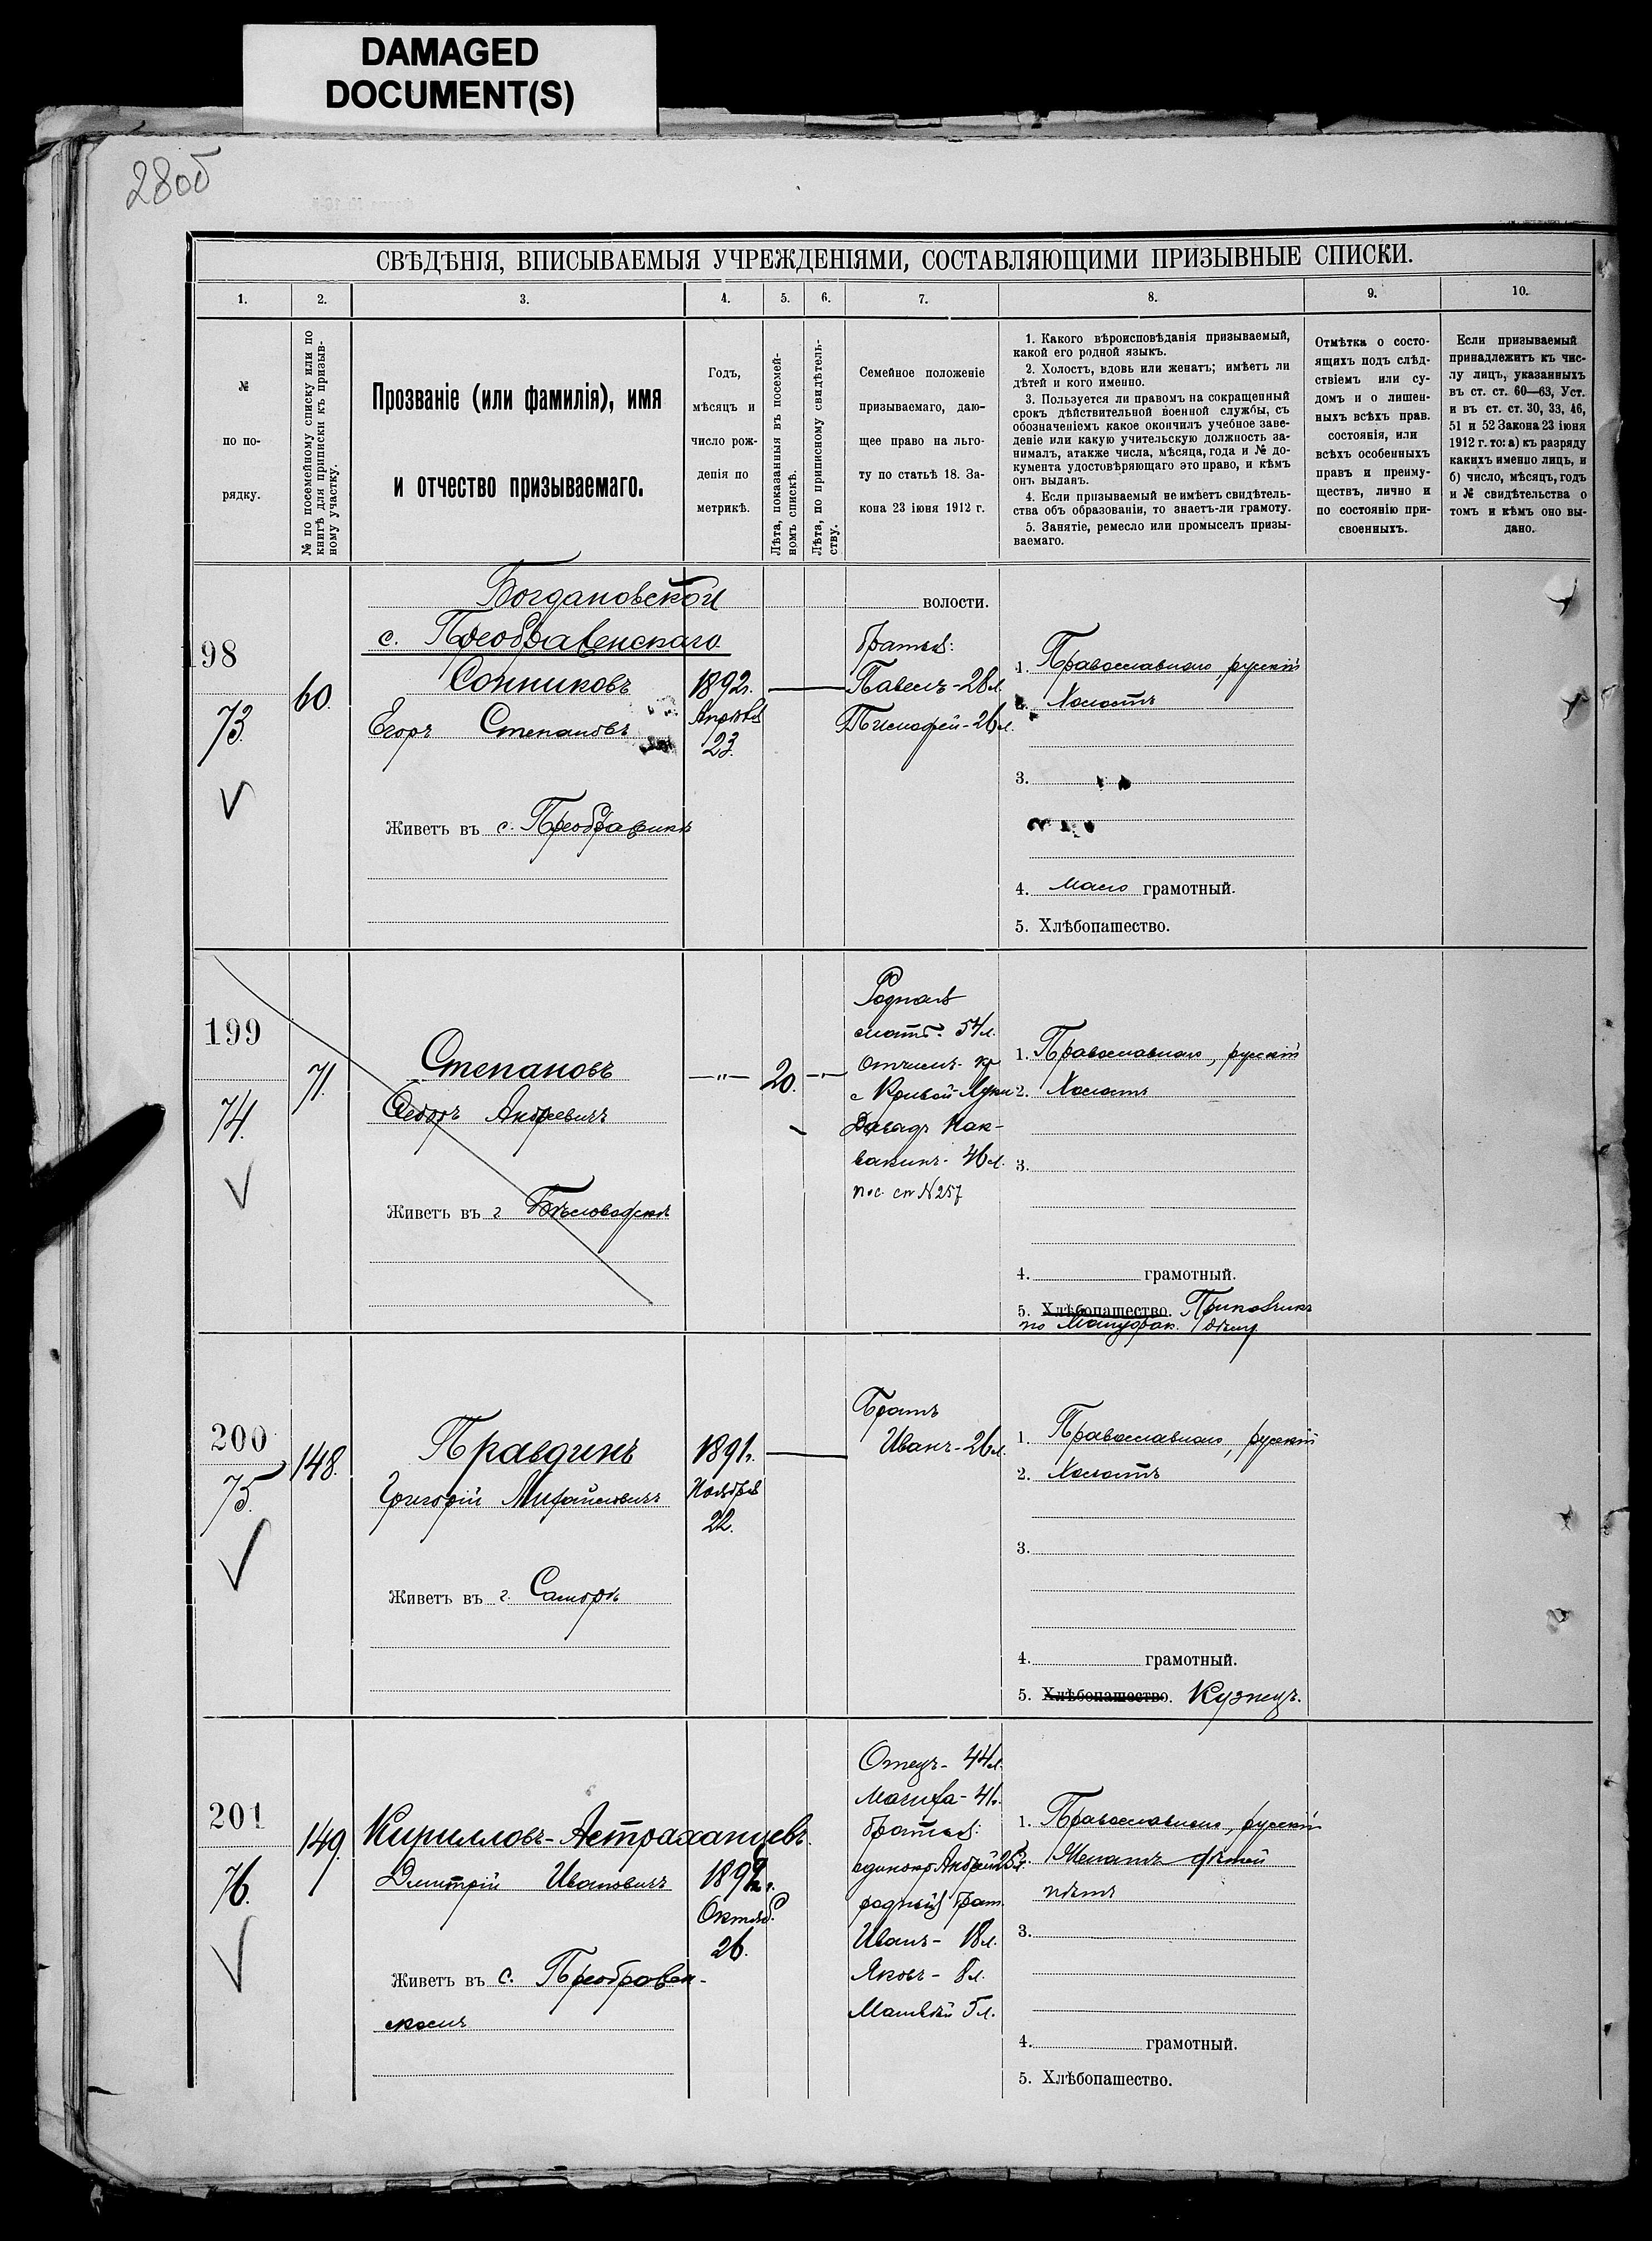 DAMAGED
DOCUMENT(S)
28об
СВѢДѢНІЯ, ВПИСЫВАЕМЫЯ УЧРЕЖДЕНІЯМИ, СОСТАВЛЯЮЩИМИ ПРИЗЫВНЫЕ СПИСКИ.
1. 2. 3. 4. 5. 6. 7. 8. 9. 10.
№
по по-
рядку.
№ по посемейному списку или по
книгѣ для приписки къ призыв-
ному участку.
Прозваніе (или фамилія), имя
и отчество призываемаго.
Годъ,
мѣсяцъ и
число рож-
денія по
метрикѣ.
Лѣта, показанныя въ посемей-
номъ спискѣ.
Лѣта, по приписному свидѣтель-
ству.
Семейное положеніе
призываемаго, даю-
щее право на льго-
ту по статьѣ 18. За-
кона 23 іюня 1912 г.
1. Какого вѣроисповѣданія призываемый,
какой его родной языкъ.
2. Холостъ, вдовъ или женатъ; имѣетъ ли
дѣтей и кого именно.
3. Пользуется ли правомъ на сокращенный
срокъ дѣйствительной военной службы, съ
обозначеніемъ какое окончилъ учебное заве-
деніе или какую учительскую должность за-
нималъ, атакже числа, мѣсяца, года и № до-
кумента удостовѣряющаго это право, и кѣмъ
онъ выданъ.
4. Если призываемый не имѣетъ свидѣтель-
ства объ образованіи, то знаетъ-ли грамоту.
5. Занятіе, ремесло или промыселъ призы-
ваемаго.
Отмѣтка о состо-
ящихъ подъ слѣд-
ствіемъ или су-
домъ и о лишен-
ныхъ всѣхъ прав.
состоянія, или
всѣхъ особенныхъ
правъ и преиму-
ществъ, лично и
по состоянію при-
своенныхъ.
Если призываемый
принадлежитъ къ чис-
лу лицъ, указанныхъ
въ ст. ст. 60—63, Уст.
и въ ст. ст. 30, 33, 46,
51 и 52 Закона 23 іюня
1912 г. то: а) къ разряду
какихъ именно лицъ, и
б) число, мѣсяцъ, годъ
и № свидѣтельства о
томъ и кѣмъ оно вы-
дано.
Богдановской волости.
с. Преображенскаго
198
73.
60.
Сонниковъ
Егоръ Степановъ
Живетъ въ с. Преображенкѣ
1892г.
Апрѣля
23.
Братья:
Павелъ - 28л.
Тимофей - 26л.
1. Православнаго, русскій
2. Холостъ
3.
4. мало грамотный.
5. Хлѣбопашество.
199
74.
71.
Степановъ
Федоръ Андреевичъ
Живетъ въ г
—"— 20. —"—
Родная
мать. 54л.
Отчимъ - кр
с Кривой-Луки
Давидъ
46л.
пос. сп N257
1. Православнаго, русскій
2. Холостъ
3.
4. грамотный.
5. Хлѣбопашество. Приказчикъ
по Мануфак.
200
75.
148.
Правдинъ
Григорій Михайловичъ
Живетъ въ г. Самарѣ
1891г.
Ноября
22.
Братъ
Иванъ - 26л.
1. Православнаго, русскій
2. Холостъ
3.
4. грамотный.
5. Хлѣбопашество. Кузнецъ.
201
76.
149.
Кирилловъ-Астраханцевъ.
Дмитрій Ивановичъ
Живетъ въ с. Преображен-
скомъ
1892г.
Октяб.
26.
Отецъ - 44л.
Мачиха - 41г.
братья:
единокр Андрей
родный брат.
Иванъ - 18л.
Яковъ - 8л.
Матвѣй 5л.
1. Православнаго, русскій
2. Женатъ дѣтей
нѣтъ
3.
4. грамотный.
5. Хлѣбопашество.